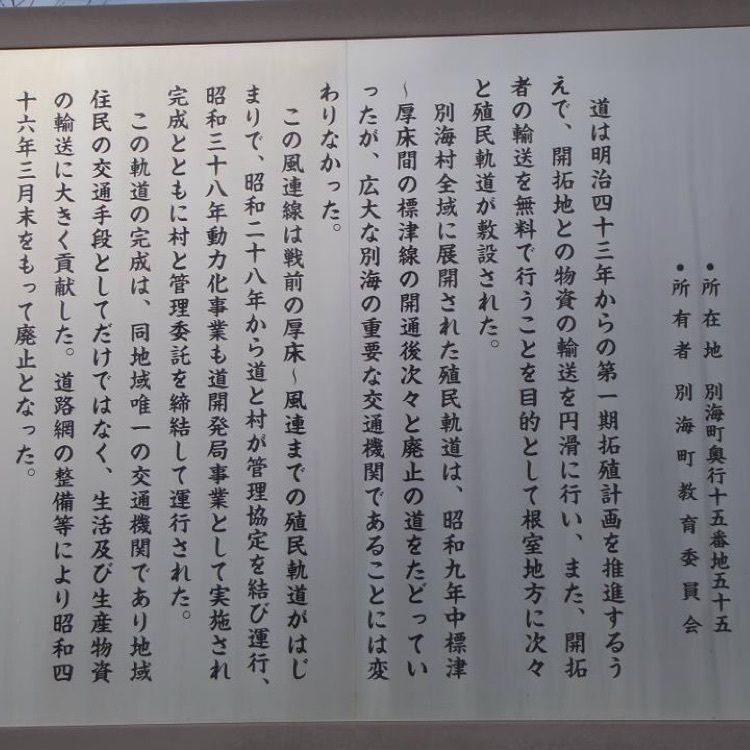 ・所在地　別海町奥行十五番地五十五
・所有者　別海町教育委員会
道は明治四十三年からの第一期拓殖計画を推進するう
えで、開拓地との物資の輸送を円滑に行い、また、開拓
者の輸送を無料で行うことを目的として根室地方に次々
と殖民軌道が敷設された。
別海村全域に展開された殖民軌道は、昭和九年中標津
～厚床間の標津線の開通後次々と廃止の道をたどってい
ったが、広大な別海の重要な交通機関であることには変
わりなかった。
この風連線は戦前の厚床～風連までの殖民軌道がはじ
まりで、昭和二十八年から道と村が管理協定を結び運行、
昭和三十八年動力化事業も道開発局事業として実施され
完成とともに村と管理委託を締結して運行された。
この軌道の完成は、同地域唯一の交通機関であり地域
住民の交通手段としてだけではなく、生活及び生産物資
の輸送に大きく貢献した。道路網の整備等により昭和四
十六年三月末をもって廃止となった。